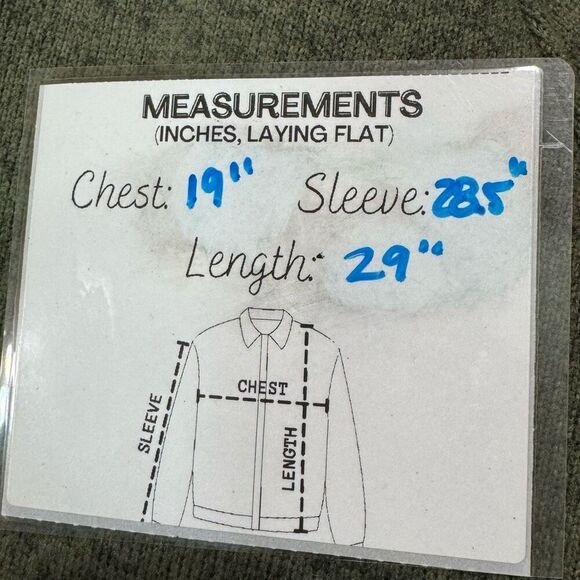 MEASUREMENTS
(INCHES, LAYING FLAT)
Chest: 19" Sleeve: 28.5"
Length: 29"
CHEST
SLEEVE
LENGTH